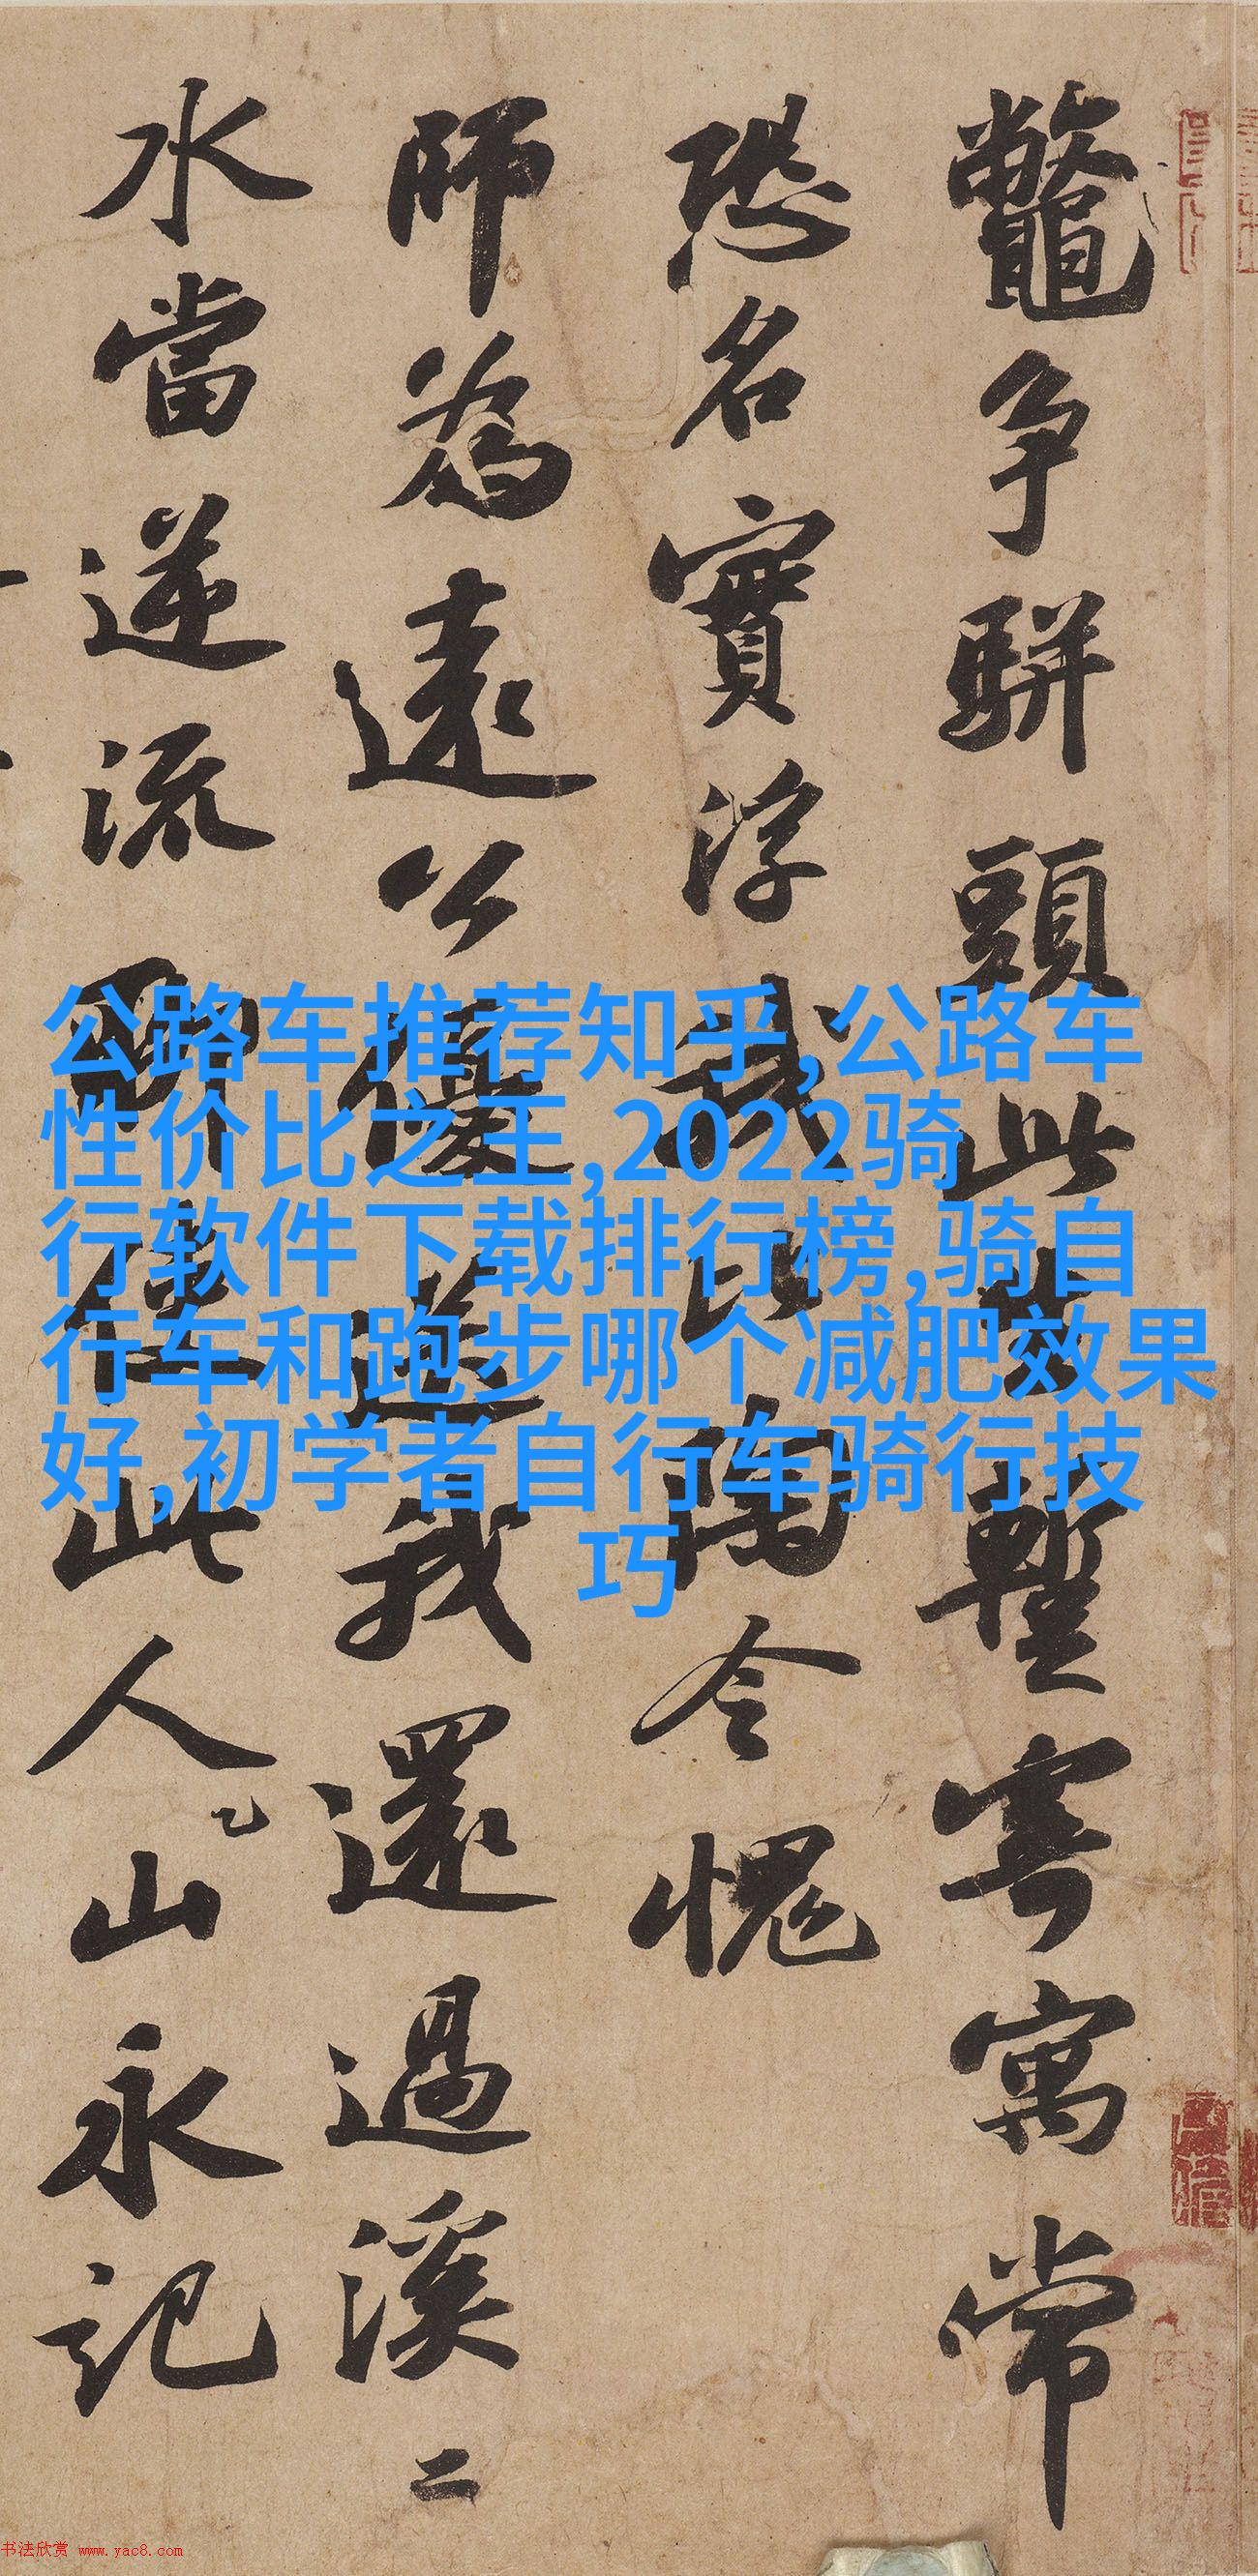 鼈争駢頭此暫寄寓常
恐名實浮我比陶令愧
師為遠公優送我還過溪二
水當逆流聊使此人山永記
公路车推荐知乎,公路车
性价比之王,2022骑
行软件下载排行榜,骑自
行车和跑步哪个减肥效果
好,初学者自行车骑行技
巧
书法欣赏 www.yac8.com